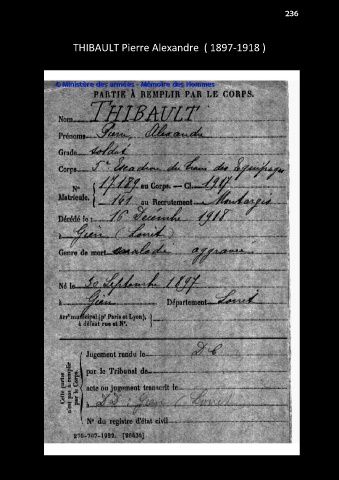 236
THIBAULT Pierre Alexandre ( 1897-1918 )
© Ministère des armées - Mémoire des Hommes
PARTIE À REMPLIR PAR LE CORPS.
Nom THIBAULT
Prénoms Pierre, Alexandre
Grade soldat
Corps 5e Escadron du Train des Equipages
N° Matricule. 17189 au Corps. — Cl. 1917
161 au Recrutement Montargis
Décédé le 16 Décembre 1918
à Gien (Loiret
Genre de mort maladie aggravée
Né le 30 Septembre 1897
à Gien Département Loiret
Arrt municipal (pr Paris et Lyon), à défaut rue et N°.
Cette partie n'est pas à remplir par le Corps.
Jugement rendu le
par le Tribunal de
acte ou jugement transcrit le
à Gien (Loiret
N° du registre d'état civil